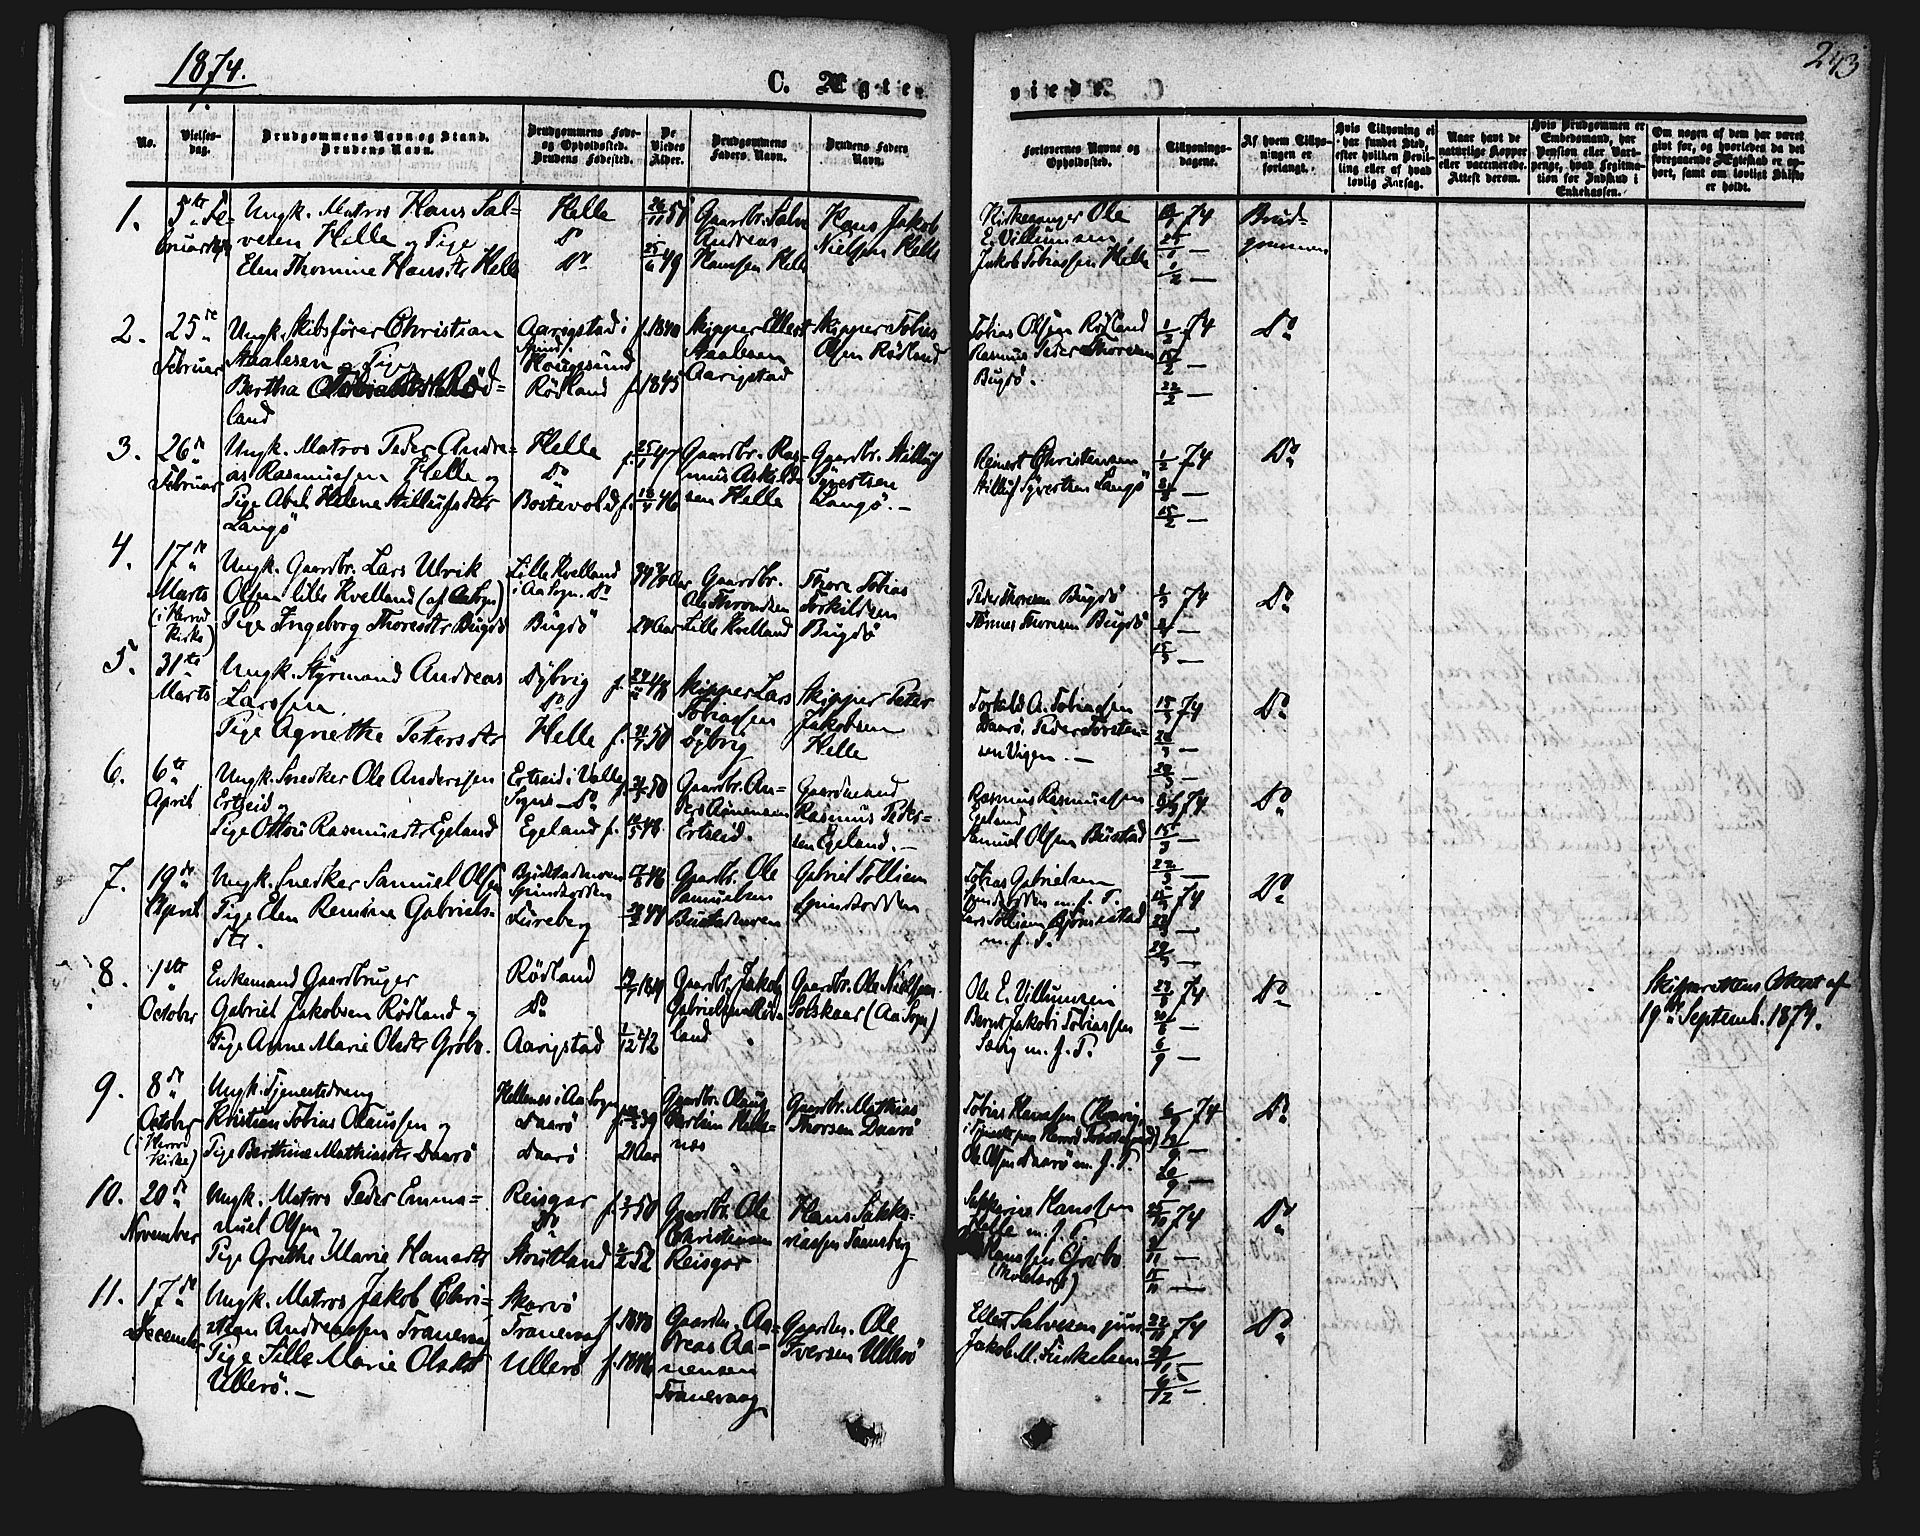 1874.
243
C. Ægtevie
viede.
No.
Vielses-
dag.
Brudgommens Navn og Stand.
Brudens Navn.
Brudgommens Føde-
og Opholdssted.
Brudens Fødested.
De
Viedes
Alder.
Brudgommens
Faders Navn.
Brudens Faders
Navn.
Forlovernes Navne og
Opholdssted.
Tillysnings-
dagene.
Af hvem Tillys-
ningen er
forlangt.
Hvis Tillysning ei
har fundet Sted,
efter hvilken Bevil-
ling eller af hvad
lovlig Aarsag.
Naar havt de
naturlige Kopper
eller vaccinerede.
Attest derom.
Hvis Brudgommen er
Embedsmand, har
Pension eller Vart-
penge, hvad Legitima-
tion for Indskud i
Enkekassen.
Om nogen af dem har været
gift før, og hvorledes da det
foregaaende Ægteskab er op-
hørt, samt om lovligt Skifte
er holdt.
1.
5te Fe-
bruar
Ungk. Matros Hans Sal-
vesen Helle og Pige
Elen Thomine Hansdtr Helle
Helle
Do
Do
26/11 51
25/6 49
Gaardbr. Salve
Andreas
Hanssen Helle
Hans Jakob
Nielsen Helle
Kirkesanger Ole
E. Villumsen,
Jakob Tobiassen Helle
74
25/1 —
1/2 —
Brud-
gommen
2.
25de
Februar
Ungk. Skibsfører Christian
Staalesen og Pige
Bertha Rød-
land
Aarigstad i
Spind,
Rødland
f. 1840
f. 1845
Skipper Ellert
Staalesen
Aarigstad
Skipper Tobias
Olsen Rødland
Tobias Olsen Rødland
Rasmus Peder Thoresen
Bugdø.
1/2 74
15/2 —
22/2 —
Do
3.
26de
Februar
Ungk. Matros Peder Andre-
as Rasmussen Helle og
Pige Abel Helene Stillufsdtr
Langö
Helle
Do
Bostevold
f. 25/1 47
f. 46
Gaardbr. Ras-
mus Askilds-
sen Helle
Gaardbr. Stilluf
Syvertsen
Langö. —
Reinert Christensen
Stilluf Syvertsen Langö
1/2 74
8/2 —
15/2 —
Do
4.
17de
Marts
(i Herred
Kirke)
Ungk. Gaardbr. Lars Ulrik
Olsen lille Kvelland (af Aa Sogn)
Pige Ingeborg Thoresdtr Bugdö
Lille Kvelland
i Aa Sogn. Do
Bugdö
Aar
24 Aar
Gaardbr.
Ole Throndsen
Lille Kvelland
Thore Tobias
Torkildsen
Bugdö
Peder Thoresen Bugdö
Tönnes Thoresen Bugdö
1/3 74
8/3 —
15/3 —
Do
5.
31te
Marts
Ungk. Styrmand Andreas
Larssen
Pige Agnethe Petersdtr
Dybvig
Do
Helle
f. 48
f. 50
Skipper Lars
Tobiassen
Dybvig
Skipper Peter
Jakobsen
Helle
Torkild A. Tobiassen
Daarö, Peder Torsten-
sen Vigen. —
15/3 74
—
—
Do
6.
6te
April
Ungk. Snedker Ole Anderssen
Ertzeid og
Pige Ottou Rasmusdtr Egeland
Ertseid i Valle
Sogn — Do
Egeland
f. 50
f. 48
Gaardbr. An-
ders Aanensen
Ertseid.
Gaardmand
Rasmus Peder-
sen Egeland. —
Rasmus Rasmussen
Egeland
Samuel Olsen Bustad
8/3 74
15/3 —
22/3 —
Do
7.
19de
April
Ungk. Snedker Samuel Olsen
Pige Elen Remine Gabriels-
dtr.
Spindsodden
Fureberg
46
44
Gaardbr. Ole
Samuelsen
Gabriel Tollisen
Spindsodden
Tobias Gabrielsen
Spindsodden m. f. T.
m. f. T.
15/3 74
22/3 —
29/3 —
Do
8.
1ste
October
Enkemand Gaardbruger
Gabriel Jakobsen Rødland og
Pige Anne Marie Olsdtr Grøbo.
Rødland
Do
Aarigstad
1/12 42
Gaardbr. Jakob
Gabrielsen Rød-
land
Gaardbr. Ole Nielsen
Solskaar (Aa Sogn)
Ole E. Villumsen
Bernt Jakob Tobiassen
m. f. T.
74
—
6/9 —
Do
Skifterettens Attest af
19de Septemb. 1874.
9.
8de
October
(i Herred
Kirke)
Ungk. Tjenestedreng
Kristian Tobias Olaussen og
Pige Berthine Mathiasdtr Daarö
Hellenes i Aa Sogn
Daarö
Daarö
39
21 Aar
Gaardbr. Olaus
Helle-
næs
Gaardbr. Mathias
Thorsen Daarö
Tobias Hanssen
Ole Olsen Daarö m. f. T.
6/9 74
—
20/9 —
Do
10.
20de
November
Ungk. Matros Peder Emma-
nuel Olsen og
Pige Grethe Marie Hansdtr
Reisgar
Do
Stoutland
f. 50
52
Gaardbr. Ole
Christensen
Reisgar
Hans Sakka-
riassen
Sakkarias Hanssen
m. f. T.
Hanssen Grøbo
25/10 74
11 —
—
Do
11.
17de
December
Ungk. Matros Jakob Chri-
stian Andreassen Tranevaag
Pige Sille Marie Olsdtr
Ullerö. —
Skarvö
Tranevaag
Ullerö
f. 1848
f. 1846
Gaardm. An-
dreas Aa-
nensen
Tranevaag
Gaardm. Ole
Iversen Ullerö
Ellert Salvesen jun
Jakob M. Terkelsen
74
—
—
Do